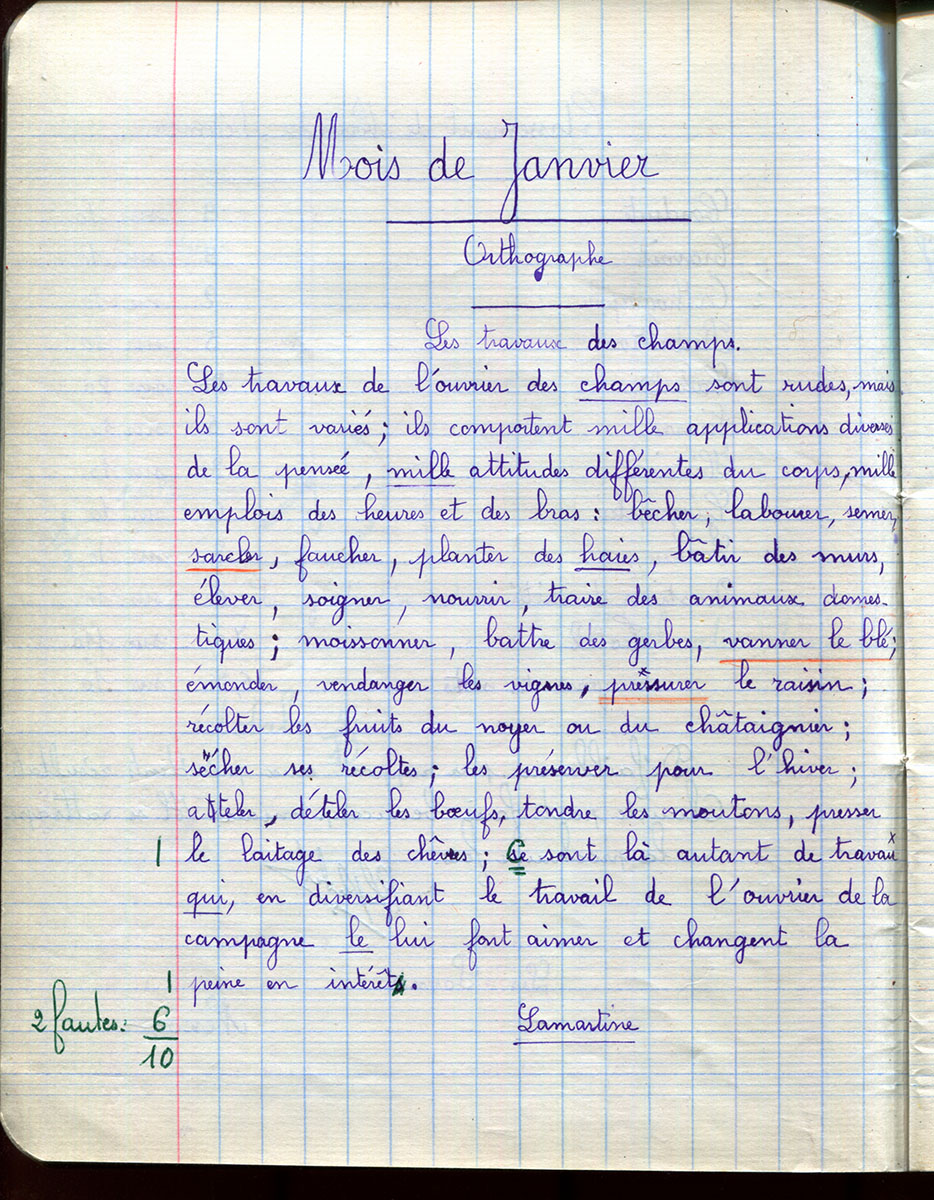 Mois de Janvier
Orthographe
Les travaux des champs.
Les travaux de l'ouvrier des champs sont rudes, mais
ils sont variés ; ils comportent mille applications diverses
de la pensée, mille attitudes différentes du corps, mille
emplois des heures et des bras : bêcher, labourer, semer,
sarcler, faucher, planter des haies, bâtir des murs,
élever, soigner, nourrir, traire des animaux domes-
tiques ; moissonner, battre des gerbes, vanner le blé ;
émonder, vendanger les vignes, pressurer le raisin ;
récolter les fruits du noyer ou du châtaignier ;
sécher ses récoltes ; les préserver pour l'hiver ;
atteler, dételer les bœufs, tondre les moutons, presser
1 le laitage des chèvres ; Ce sont là autant de travaux
qui, en diversifiant le travail de l'ouvrier de la
campagne le lui font aimer et changent la
1 peine en intérêt.
2 fautes : 6/10
Lamartine